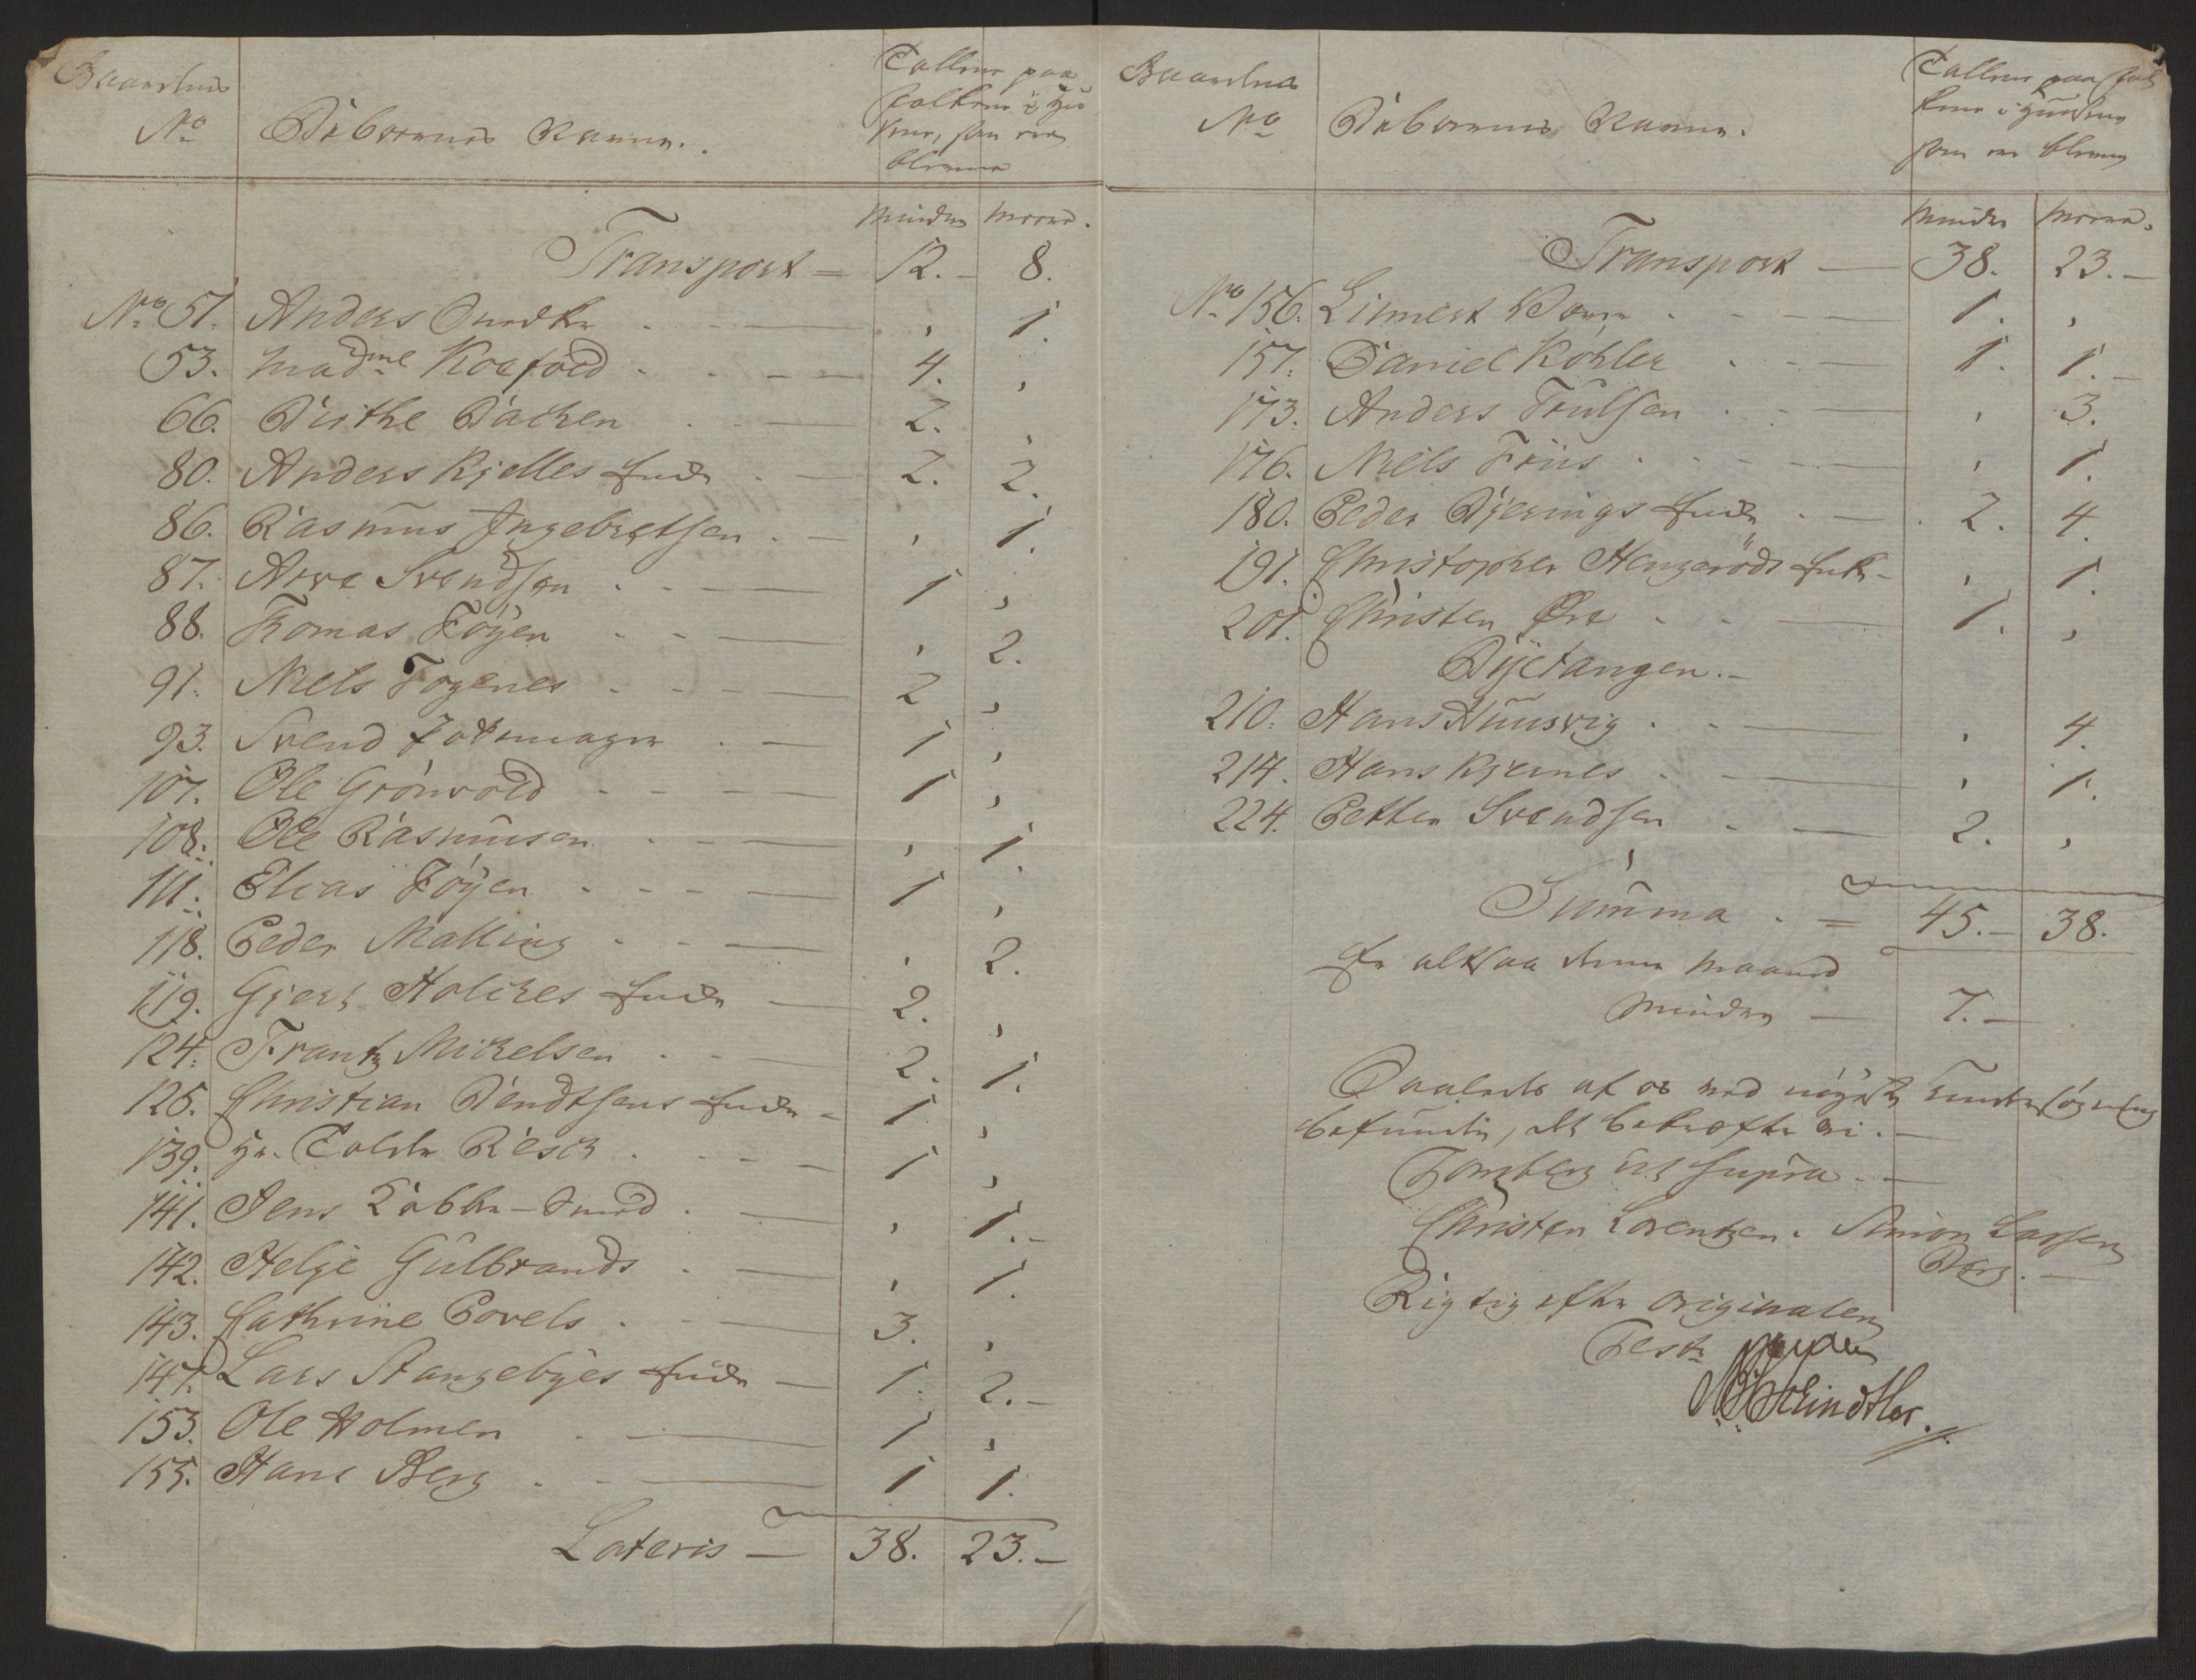 Gaardens
No
Beboernes Navne.
Tallene paa
Folkene i Hu
sene, som ere
blevne
minder
meere.
Transport = 12. - 8.
No 51. Anders Smedke . - , 1.
53. Madme Koefoed . - 4. ,
66. Birthe Bachen . - 2. ,
80. Anders Kjelles Enke . - 2. 2.
86. Rasmus Ingebretsen . - , 1.
87. Arve Svendsen . - 1 ,
88. Tomas Føyen . - , 2.
91. Niels Fogenes . - 2 ,
93. Svend . - 1 ,
107. Ole Grönvold . - 1 ,
108. Ole Rasmusen . - , 1.
111. Elias Föyen . - 1 ,
118. Peder Malling . - , 2.
119. Gjert Holches Enke - 2. ,
124. Frantz Michelsen . - 2. 1.
125. Christian Bendtsens Enke - 1 ,
139. Hr. Tolder Resch . - 1 ,
141. Jens Kobber-Smed . - , 1. -
142. Helge Gulbrands . - , 1.
143. Cathrine Povels . - 3. ,
147. Lars Stangebyes Enke - 1. 2. -
153. Ole Holmen . - 1 ,
155. Hans Berg . - 1 1.
Lateris - 38. 23. -
Gaardens
No
Beboernes Navne.
Tallene paa Fol
kene i Husene
som ere blevne
minder
meere.
Transport - 38. 23. -
No 156. Linnert . - 1. ,
157. Daniel Köhler . - 1. 1. -
173. Anders Trulsen . - , 3.
176. Niels Friis . - , 1.
180. Peder Bjerings Enke . - 2. 4.
191. Christopher Hengeröds Enke - , 1.
201. Christen Öre . - 1. ,
Byetangen. -
210. Hans Huusvig . - , 4.
214. Hans Kjernes . - , 1.
224. Petter Svendsen . - 2. ,
Summa . = 45. - 38.
Er altsaa denne Maaned
minder - 7. -
Saaledes af os ved nöyeste Undersögning
befunden, det bekræfter vi. -
Tonsberg ut supra. -
Christen Lorentzen. Simon Larsen
Berg. -
Rigtig efter Originalen
Test
Schindtler.